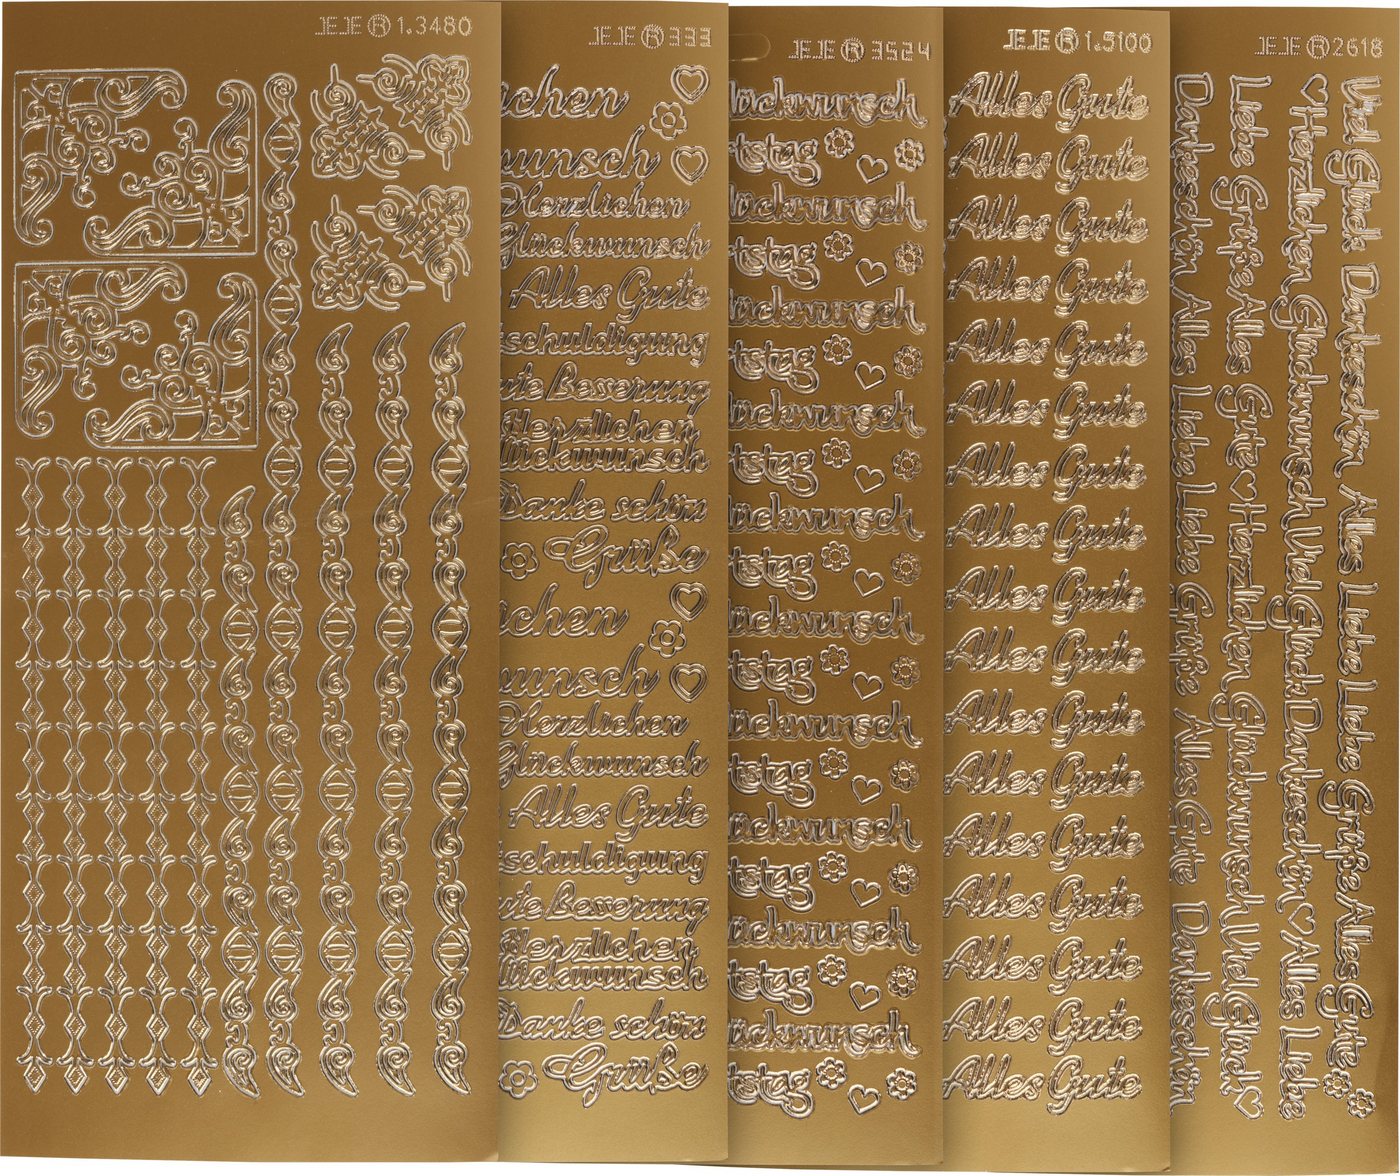 JEJE ® 1.3480
JEJE ® 333
chen
wunsch
Herzlichen
Glückwunsch
Alles Gute
tschuldigung
ute Besserung
Herzlichen
lückwunsch
Danke schön
Grüße
chen
wunsch
Herzlichen
Glückwunsch
Alles Gute
tschuldigung
ute Besserung
Herzlichen
lückwunsch
Danke schön
Grüße
JEJE ® 3524
lückwunsch
tstag
lückwunsch
tstag
lückwunsch
tstag
lückwunsch
tstag
lückwunsch
tstag
lückwunsch
tstag
lückwunsch
tstag
lückwunsch
tstag
lückwunsch
tstag
lückwunsch
tstag
JEJE ® 1.5100
Alles Gute
Alles Gute
Alles Gute
Alles Gute
Alles Gute
Alles Gute
Alles Gute
Alles Gute
Alles Gute
Alles Gute
Alles Gute
Alles Gute
Alles Gute
Alles Gute
Alles Gute
Alles Gute
Alles Gute
JEJE ® 2618
Viel Glück Dankeschön Alles Liebe Liebe Grüße Alles Gute
Herzlichen Glückwunsch Viel Glück Dankeschön Alles Liebe
Liebe Grüße Alles Gute Herzlichen Glückwunsch Viel Glück
Dankeschön Alles Liebe Liebe Grüße Alles Gute Dankeschön